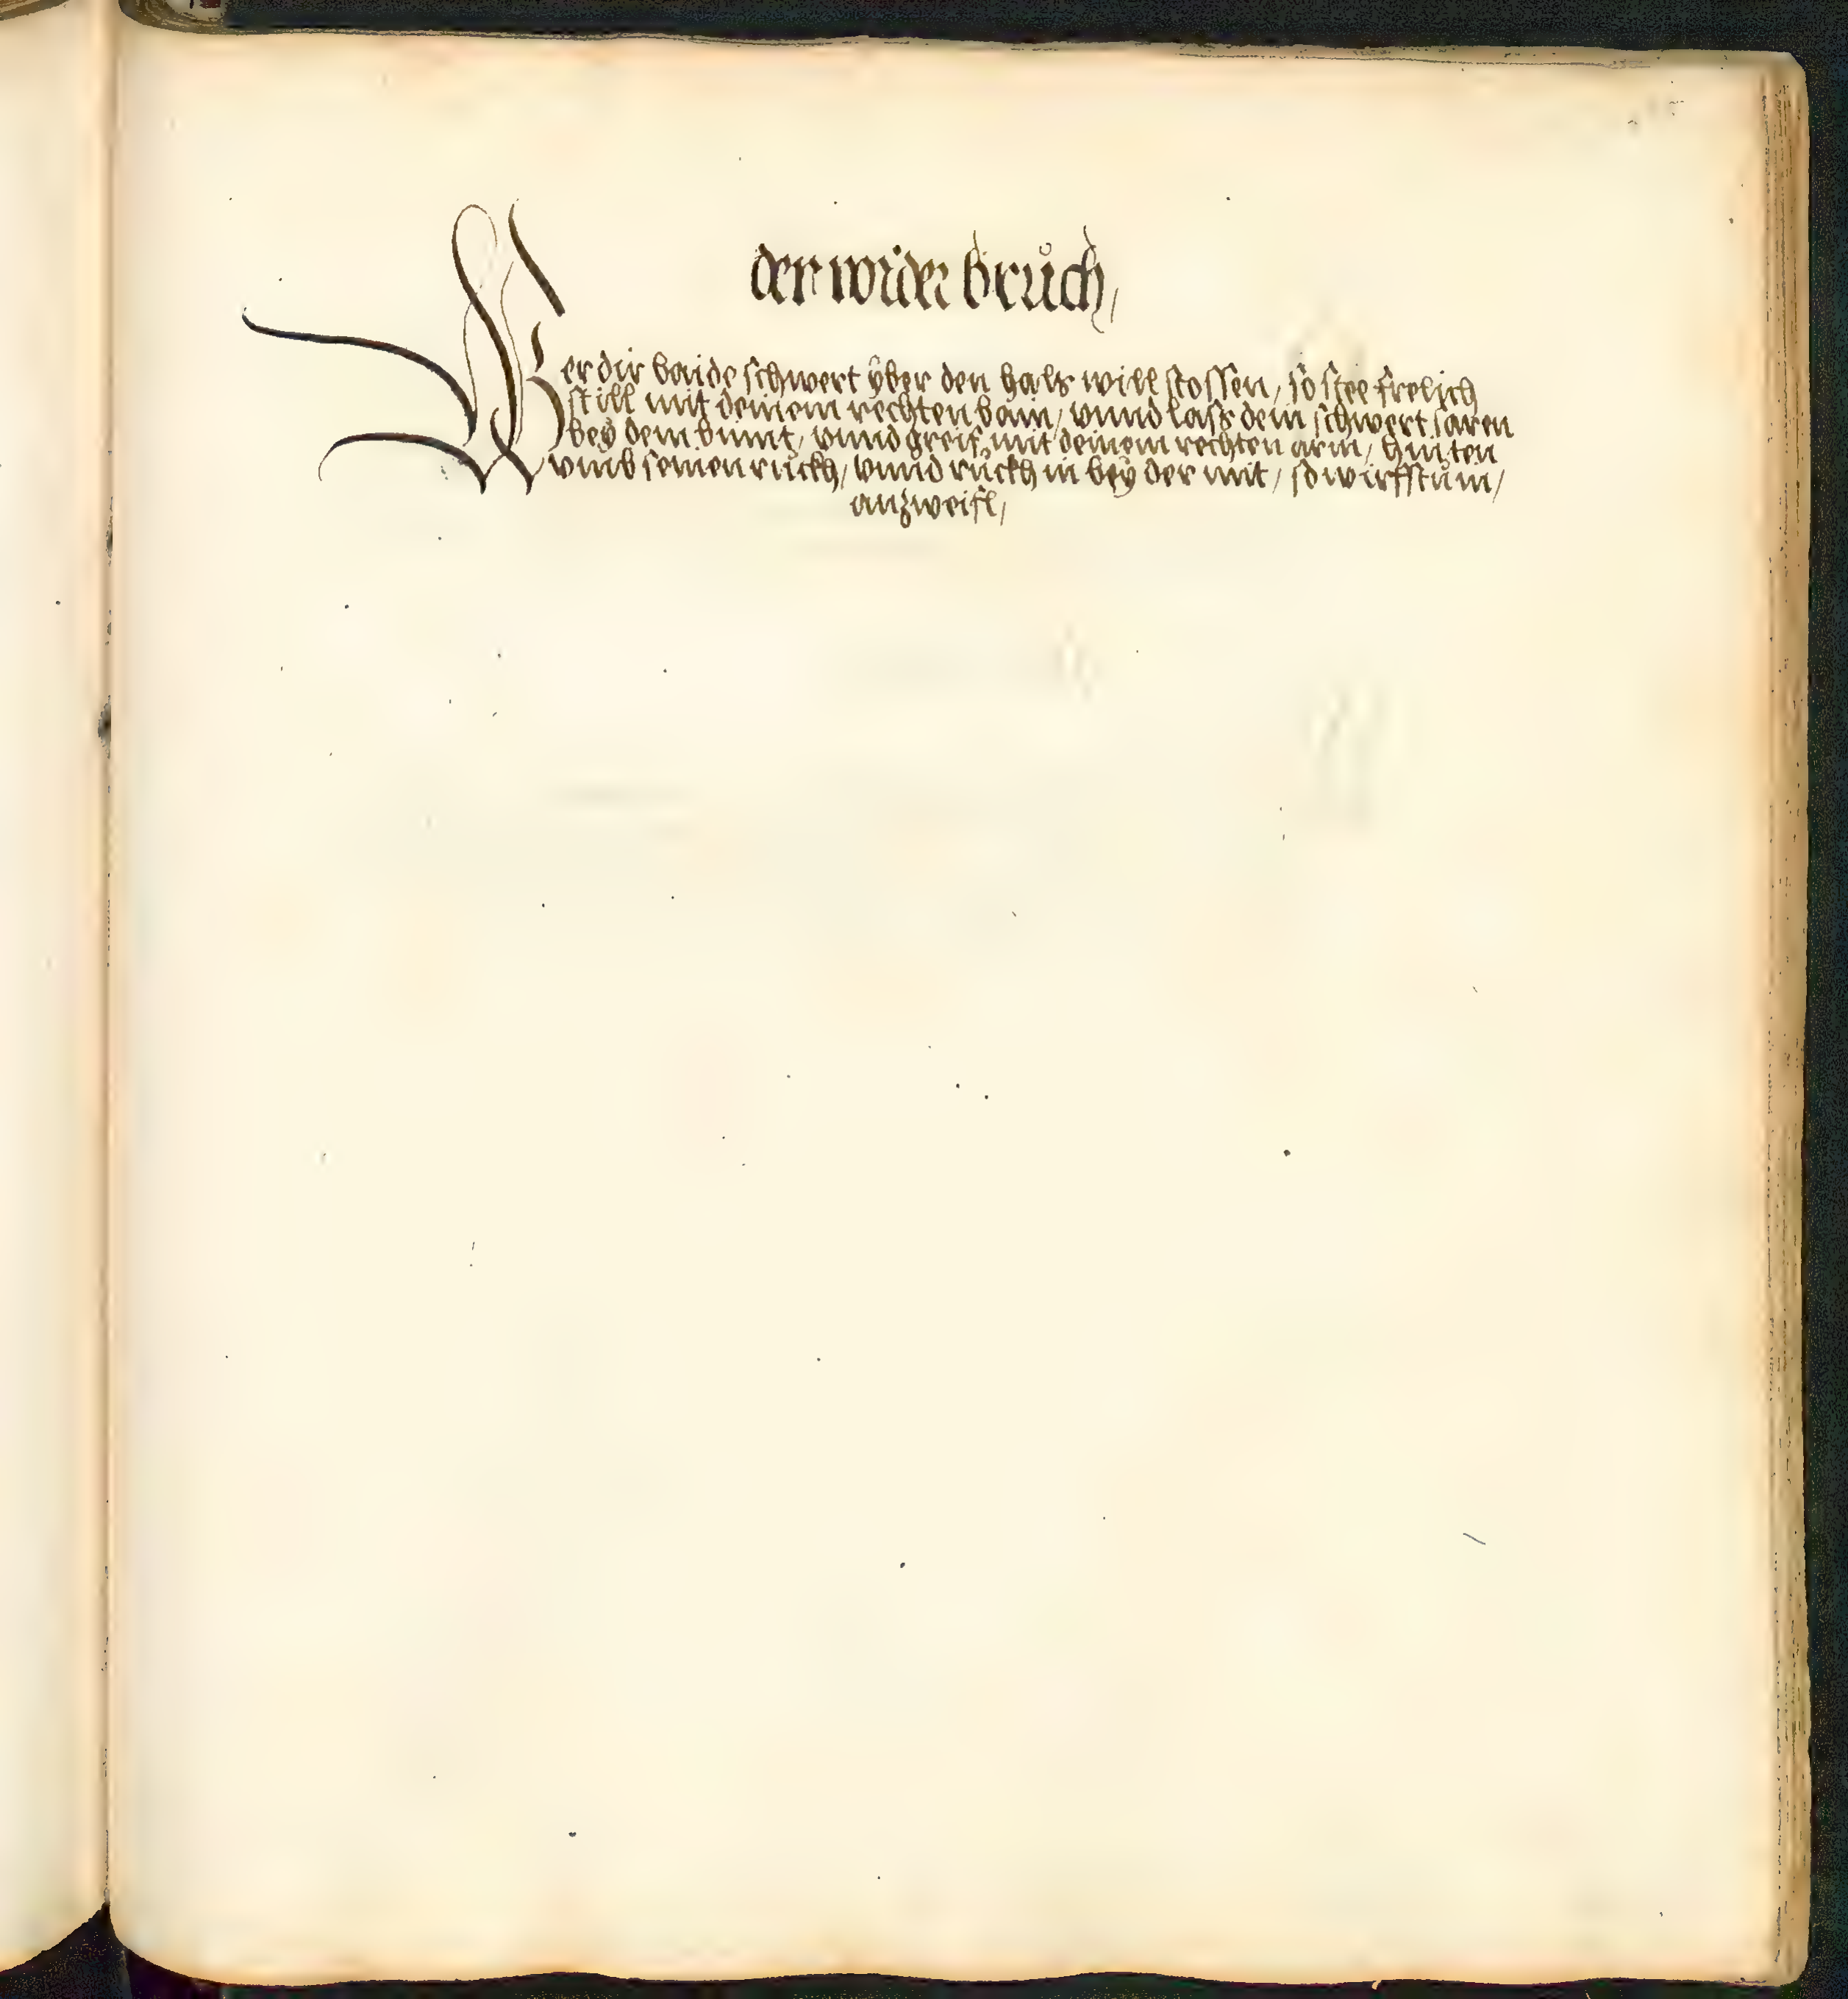 der wider brůch,
Wer dir baide schwert ÿber den hals will stossen, so stee frelich
still mit deinem rechten bain, vnnd lass dein schwert faren
beÿ dem bünt, vnnd greif mit deinem rechten arm, hinten
vmb seinen rückh, vnnd rückh in beÿ der mit, so wirfstü in,
anzweifl,